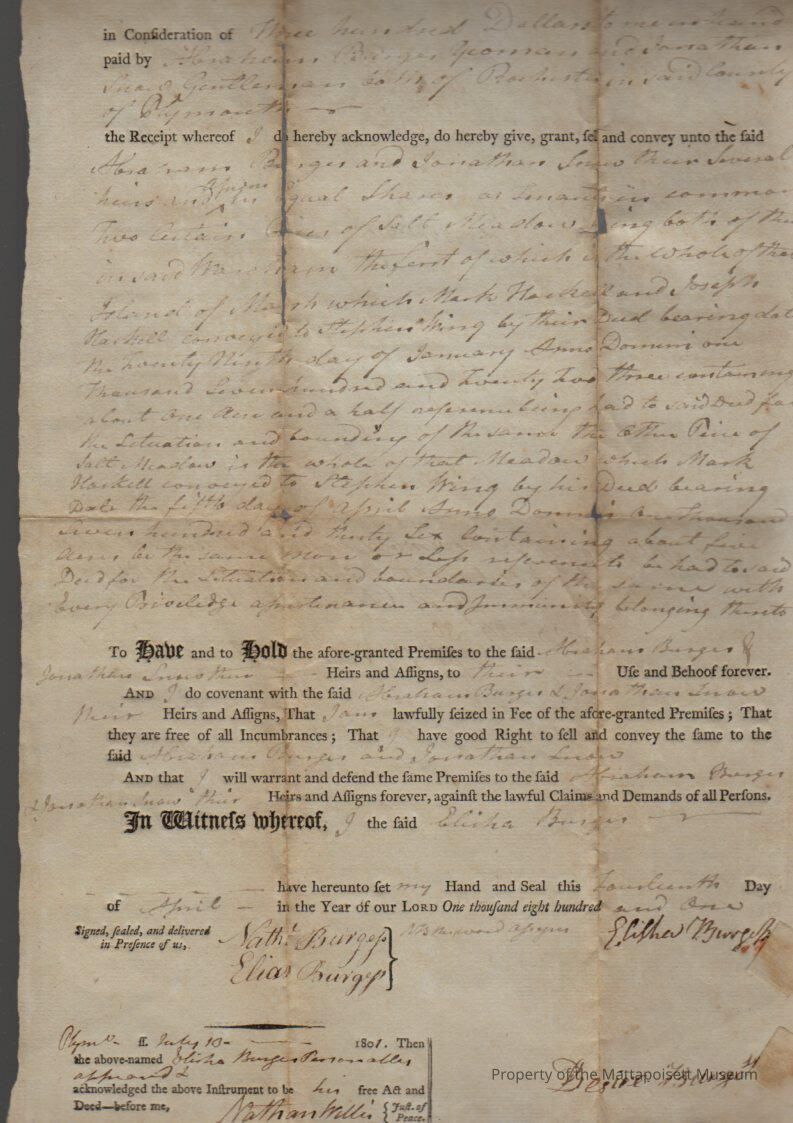 in Consideration of Three hundred Dollars to me in hand
paid by Abraham Burges Yeoman and Jonathan
Snow Gentleman both of Rochester in said County
of Plymouth
the Receipt whereof I do hereby acknowledge, do hereby give, grant, ſell and convey unto the ſaid
Abraham Burges and Jonathan Snow their Several
heirs and aſsigns in Equal Shares as tenants in common
Two Certain Pieces of Salt Meadow lying both of them
in said Wareham the ferst of which is the whole of that
Island of Marsh which Mark Haskell and Joseph
Haskell conveyed to Stephen Wing by their Deed bearing date
the Twenty Ninth day of January Anno Domini one
Thousand Seven hundred and Twenty Two three containing
about One Acre and a half reference being had to said Deed for
the Situation and bounding of the same the Other Peice of
Salt Meadow is the whole of that Meadow which Mark
Haskell conveyed to Stephen Wing by his Deed bearing
Date the fifth day of April Anno Domini One thousand
Seven hundred and thirty Six Containing about five
Acres be the same more or Less reference to be had to said
Deed for the Situation and boundaries of the same with
Every Priviledge apurtenance and Immunity belonging thereto
To Have and to Hold the afore-granted Premiſes to the ſaid Abraham Burges &
Jonathan Snow their Heirs and Aſſigns, to their Uſe and Behoof forever.
AND I do covenant with the ſaid Abraham Burges & Jonathan Snow
their Heirs and Aſſigns, That I am lawfully ſeized in Fee of the afore-granted Premiſes; That
they are free of all Incumbrances; That I have good Right to ſell and convey the ſame to the
ſaid Abraham Burges and Jonathan Snow
AND that I will warrant and defend the ſame Premiſes to the ſaid Abraham Burges
& Jonathan Snow their Heirs and Aſſigns forever, againſt the lawful Claims and Demands of all Perſons.
In Witneſs whereof, I the ſaid Elisha Burges
have hereunto ſet my Hand and Seal this fourteenth Day
of April in the Year of our LORD One thouſand eight hundred and One
Signed, ſealed, and delivered
in Preſence of us,
Nathl Burgeſs
Elias Burgeſs
NB the word aſsigns
Elisha Burgeſs
Plymo ſſ. July 13 1801. Then
the above-named Elisha Burges Personally
appeared &
acknowledged the above Inſtrument to be his free Act and
Deed—before me,
Nathan Willis { Juſt. of
Peace.
Property of the Mattapoisett Museum